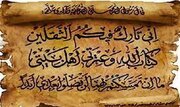 إني تارك فيكم الثقلين
كتاب الله وعترتي أهل بيتي
ما إن تمسكتم بهما لن تضلوا بعدي أبدا